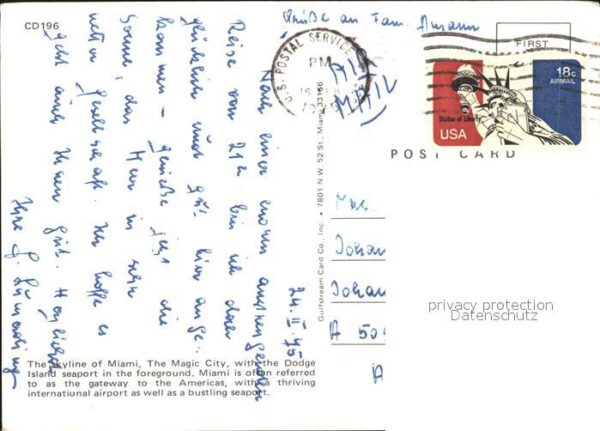 CD196
Grüße an Fam. Amann
U.S. POSTAL SERVICE
PM
AIR
MAIL
FIRST
18c
AIRMAIL
Statue of Liberty
USA
POST CARD
24.II.95
Nach einer enorm anstrengenden
Reise von 21h bin ich doch
glücklich und gut hier ange-
kommen - genieße jetzt die
Sonne, das Meer in sehr
netter Gesellschaft. Ich hoffe es
geht auch Ihnen gut. Herzlichst
Ihre G.
Gulfstream Card Co., Inc. • 7801 N.W. 52 St., Miami 33166
Johan
Johan
A 50
A
privacy protection
Datenschutz
The Skyline of Miami, The Magic City, with the Dodge
Island seaport in the foreground. Miami is often referred
to as the gateway to the Americas, with a thriving
international airport as well as a bustling seaport.